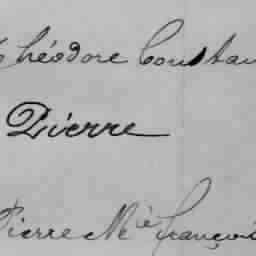 Théodore Constan
Pierre
Pierre Mie françoi